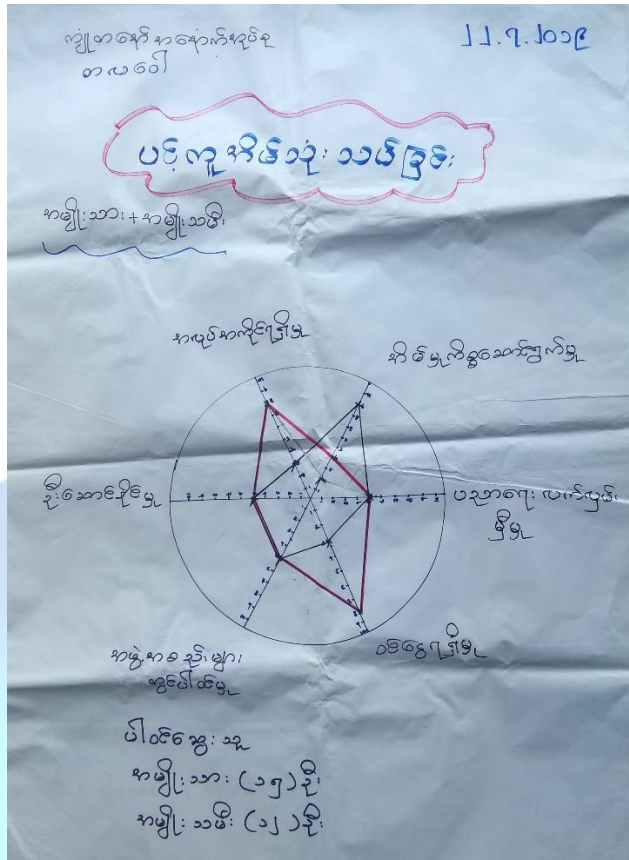 ကျုံတနော် အနောက်အုပ်စု
တလဝေါ
၂၂.၇.၂၀၁၉
ပင့်ကူအိမ်သုံး သပ်ခြင်း
အမျိုးသား+အမျိုးသမီး
အလုပ်အကိုင်ရရှိမှု
အိမ်မှုကိစ္စဆောင်ရွက်မှု
ဦးဆောင်နိုင်မှု
ပညာရေး လက်လှမ်း
မှီမှု
ဝင်ငွေရရှိမှု
အဖွဲ့အစည်းများ
တွင်ပါဝင်မှု
ပါဝင်ဆွေးသူ
အမျိုးသား (၁၅)ဦး
အမျိုးသမီး (၁၂)ဦး